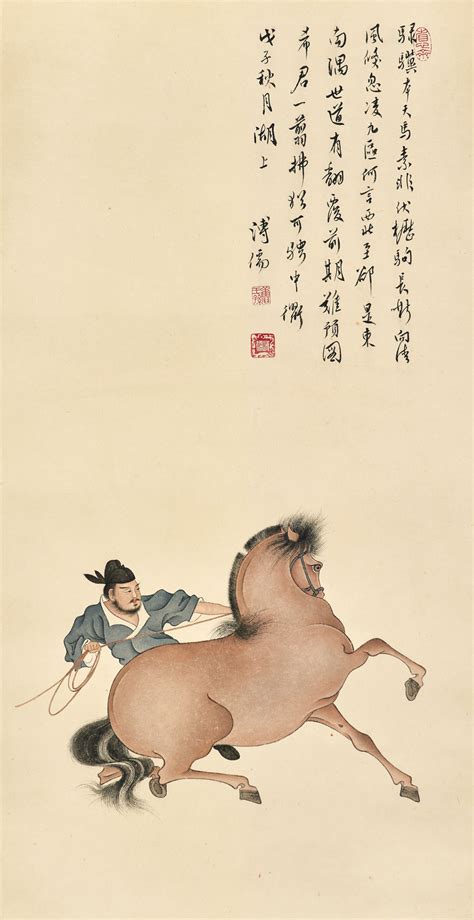 騄驥本天馬素非伏櫪駒長嘶向清
風倏忽凌九區何言西北至卻走東
南隅世道有翻覆前期難預圖
希君一翦拂猶可騁中衢
戊子秋月湖上 溥儒